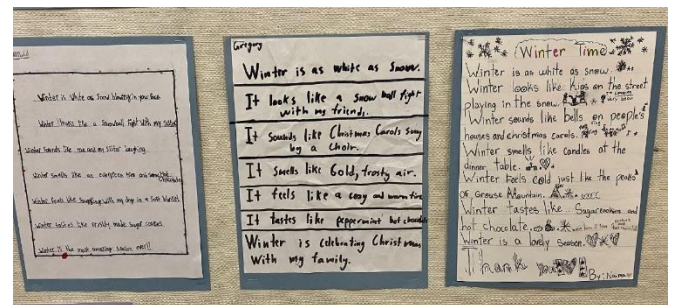 Winter is White as Snow blowing in your face.
Winter looks like a Snowball fight with my sister
Winter Sounds like me and my sister laughing.
Winter Smells like an evergreen tree and some hot chocolate
Winter feels like Snuggling with my dog in a soft blanket
Winter tastes like freshly made Sugar cookies
Winter is the most amazing season ever!!
Gregory
Winter is as white as Snow.
It looks like a Snow ball fight
with my friends.
It Sounds like Christmas Carols Sung
by a choir.
It Smells like Cold, frosty air.
It feels like a cosy and warm fire
It tastes like peppermint hot chocolate
Winter is celebrating Christmas
with my family.
Winter Time
Winter is as white as snow.
Winter looks like Kids on the street
playing in the snow.
Winter sounds like bells on people's
houses and christmas carols.
Winter smells like candles at the
dinner table.
Winter Feels cold just like the peaks
OF Grouse Mountain.
Winter tastes like Sugar cookies and
hot chocolate.
Winter is a lovely season.
Thank you
By: